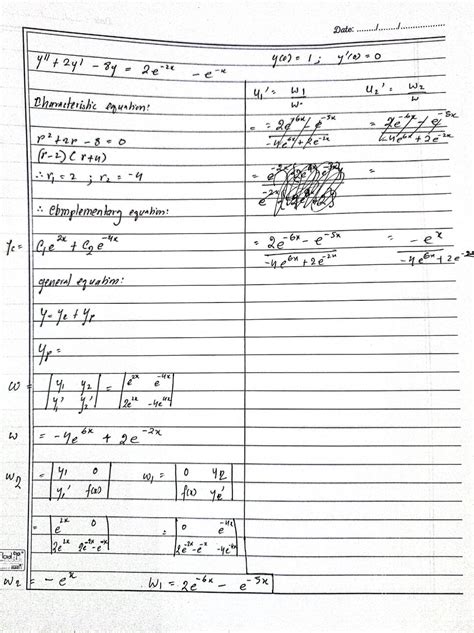 Date: ......../......../........
y'' + 2y' - 8y = 2e^{-2x} - e^{-x}
y(0) = 1 ; y'(0) = 0
Characteristic equation:
r² + 2r - 8 = 0
(r-2)(r+4)
∴ r₁ = 2 ; r₂ = -4
∴ Complementary equation:
y_c = C₁e^{2x} + C₂e^{-4x}
general equation:
y = y_c + y_p
y_p =
W = | y₁ y₂ | = | e^{2x} e^{-4x} |
| y₁' y₂' | | 2e^{2x} -4e^{4x} |
W = -4e^{6x} + 2e^{-2x}
W₂ = | y₁ 0 | W₁ = | 0 y₂ |
| y₁' f(x) | | f(x) y₂' |
= | e^{2x} 0 | = | 0 e^{-4x} |
| 2e^{2x} 2e^{-2x}-e^{-x} | | 2e^{-2x}-e^{-x} -4e^{-4x} |
W₂ = -e^{x} W₁ = 2e^{-6x} - e^{-5x}
u₁' = W₁ / W u₂' = W₂ / W
= 2e^{-6x} - e^{-5x} / -4e^{6x} + 2e^{-2x} = 2e^{-6x} - e^{-5x} / -4e^{6x} + 2e^{-2x}
= 2e^{-6x} - e^{-5x} / -4e^{6x} + 2e^{-2x} = -e^{x} / -4e^{6x} + 2e^{-2x}